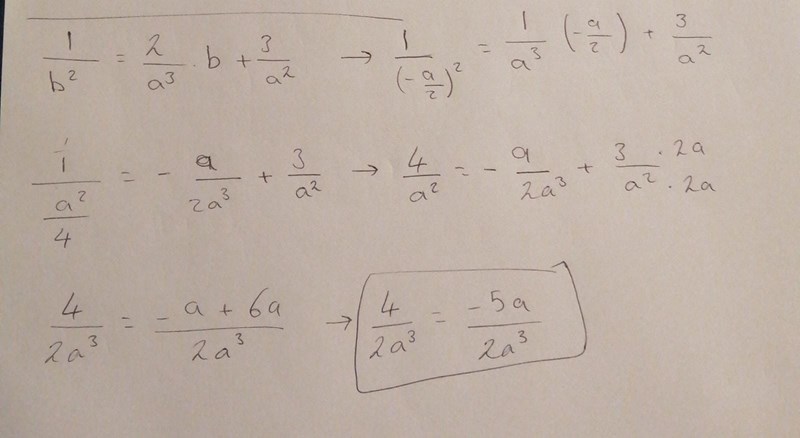 1/b² = 2/a³ · b + 3/a² → 1/(-a/2)² = 1/a³ (-a/2) + 3/a²
1/(a²/4) = - a/2a³ + 3/a² → 4/a² = - a/2a³ + 3/a² · 2a/· 2a
4/2a³ = (-a + 6a)/2a³ → 4/2a³ = -5a/2a³